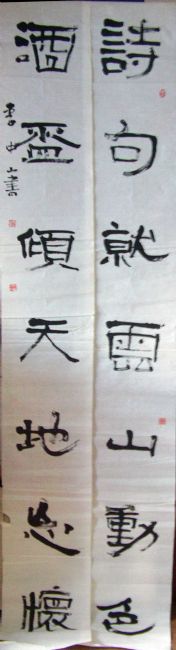 詩句就雲山動色
酒盃傾天地忘懷